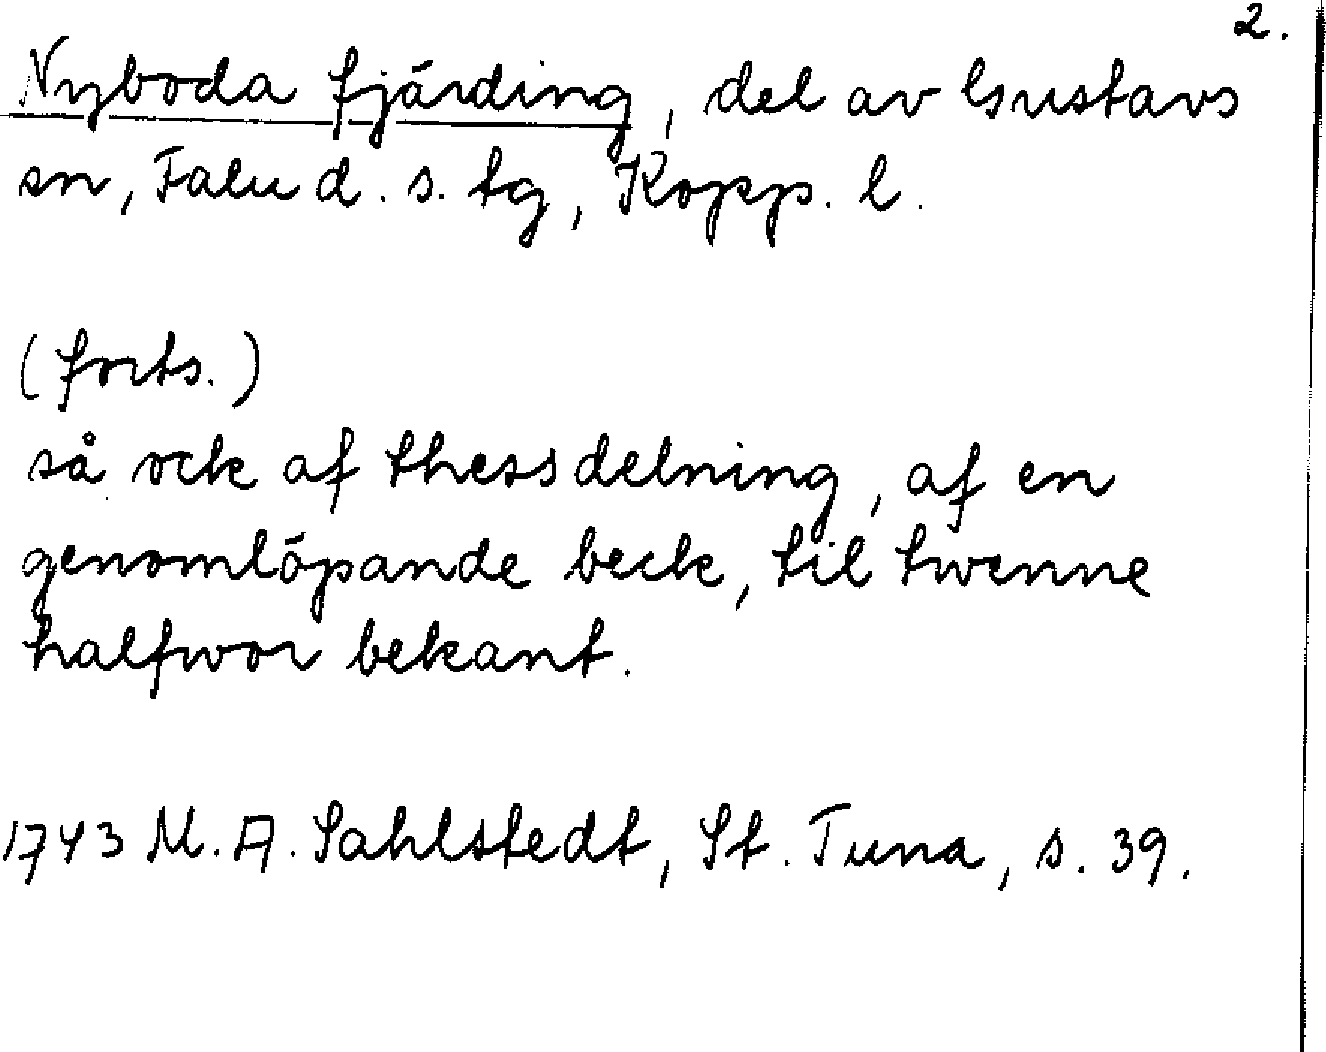 2.
Nyboda fjärding, del av Gustavs
sn, Falu d. s. tg, Kopp. l.
(forts.)
så ock af thess delning, af en
genomlöpande beck, til twenne
halfwor bekant.
1743 M. A. Sahlstedt, St. Tuna, s. 39.